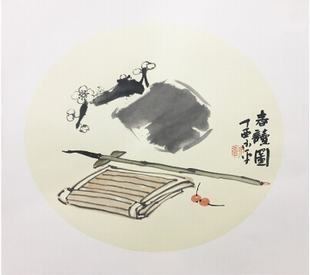 春讀圖
丁酉小平